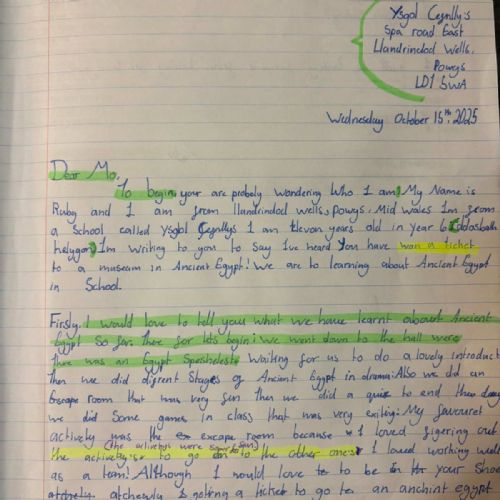 Ysgol Cefnllys
Spa road East
Llandrindod Wells.
Powys
LD1 5WA
Wednesday October 15th. 2025
Dear Mo,
To begin, your are probely wondering Who I am! My Name is
Ruby and I am from llandrindod wells, powys, Mid Wales Im from
a School called Ysgol Cefnllys I am Elevon years old in year 6
helygon) Im writing to you to say I've heard You have won a ticket
to a museum in Ancient Egypt! We are to learning about Ancient Egypt
in School.
Firsly, I would love to tell you what we have learnt about Ancient
Egypt so far. There for lets begin: we went down to the hall were
There was an Egypt Spesheleste waiting for us to do a lovely introduct
Then we did difrent Stages of Ancient Egypt in drama: Also we did an
Escape room that was very fun Then we did a quiz to end the day
we did Some games in class that was very exiting: My favouret
activety was the escape room because I loved figering out
(the activitys were so fun)
the activety's to go to the other ones I loved working well
as a team! Although I would love to be in your shoe
a ticket to go to an anchint egypt